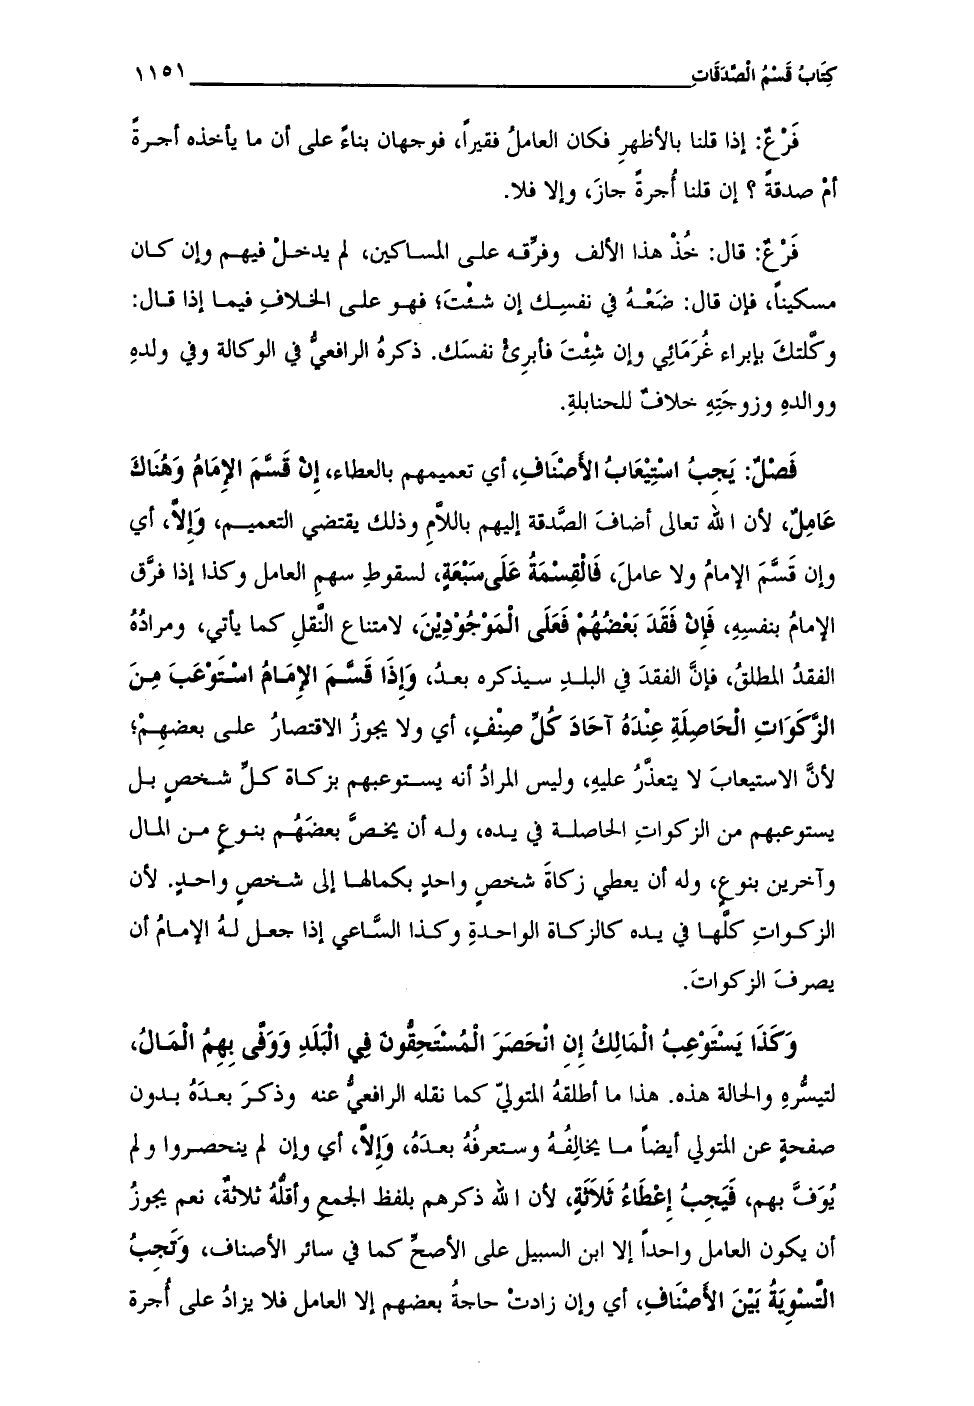 كِتَابُ قَسْمُ الْصَّدَقَاتِ ١١٥١
فَرْعٌ: إذا قلنا بالأظهرِ فكان العاملُ فقيراً، فوجهان بناءً على أن ما يأخذه أجرةً
أمْ صدقةً ؟ إن قلنا أُجرةً جازَ، وإلا فلا.
فَرْعٌ: قال: خُذْ هذا الألف وفرِّقه على المساكين، لم يدخلْ فيهم وإن كان
مسكيناً، فإن قال: ضَعْهُ في نفسِك إن شئْتَ؛ فهو على الخلافِ فيما إذا قال:
وكَّلتكَ بإبراء غُرَمَائِي وإن شِئْتَ فأبرِئْ نفسَك. ذكرهُ الرافعيُّ في الوكالة وفي ولدهِ
ووالدهِ وزوجَتِهِ خلافٌ للحنابلةِ.
فَصْلٌ: يَجِبُ اسْتِيْعَابُ الأَصْنَافِ، أي تعميمهم بالعطاء، إِنْ قَسَّمَ الإِمَامُ وَهُنَاكَ
عَامِلٌ، لأن الله تعالى أضافَ الصَّدقة إليهم باللاَّمِ وذلك يقتضي التعميم، وَإِلاَّ، أي
وإن قَسَّمَ الإمامُ ولا عاملَ، فَالْقِسْمَةُ عَلَى سَبْعَةٍ، لسقوطِ سهمِ العامل وكذا إذا فرَّق
الإمامُ بنفسِهِ، فَإِنْ فَقَدَ بَعْضُهُمْ فَعَلَى الْمَوْجُوْدِيْنَ، لامتناع النَّقلِ كما يأتي، ومرادُهُ
الفقدُ المطلقُ، فإنَّ الفقدَ في البلدِ سيذكره بعدُ، وَإِذَا قَسَّمَ الإِمَامُ اسْتَوْعَبَ مِنَ
الزَّكَوَاتِ الْحَاصِلَةِ عِنْدَهُ آحَادَ كُلِّ صِنْفٍ، أي ولا يجوزُ الاقتصارُ على بعضهمْ؛
لأنَّ الاستيعابَ لا يتعذَّرُ عليهِ، وليس المرادُ أنه يستوعبهم بزكاة كلِّ شخصٍ بل
يستوعبهم من الزكواتِ الحاصلة في يده، وله أن يخصَّ بعضَهُم بنوعٍ من المال
وآخرين بنوعٍ، وله أن يعطي زكاةَ شخصٍ واحدٍ بكمالها إلى شخصٍ واحدٍ. لأن
الزكواتِ كلَّها في يده كالزكاة الواحدةِ وكذا السَّاعي إذا جعل لهُ الإمامُ أن
يصرفَ الزكواتَ.
وَكَذَا يَسْتَوْعِبُ الْمَالِكُ إِنِ انْحَصَرَ الْمُسْتَحِقُّونَ فِي الْبَلَدِ وَوَفَّى بِهِمُ الْمَالُ،
لتيسُّرهِ والحالة هذه. هذا ما أطلقهُ المتوليّ كما نقله الرافعيُّ عنه وذكرَ بعدَهُ بدون
صفحةٍ عن المتولي أيضاً ما يخالِفُهُ وستعرفُهُ بعدَهُ، وَإِلاَّ، أي وإن لم ينحصروا ولم
يُوَفَّ بهم، فَيَجِبُ إِعْطَاءُ ثَلاَثَةٍ، لأن الله ذكرهم بلفظ الجمعِ وأقلُّهُ ثلاثةٌ، نعم يجوزُ
أن يكون العامل واحداً إلا ابن السبيل على الأصحِّ كما في سائر الأصناف، وَتَجِبُ
التَّسْوِيَةُ بَيْنَ الأَصْنَافِ، أي وإن زادتْ حاجةُ بعضهم إلا العامل فلا يزادُ على أُجرة